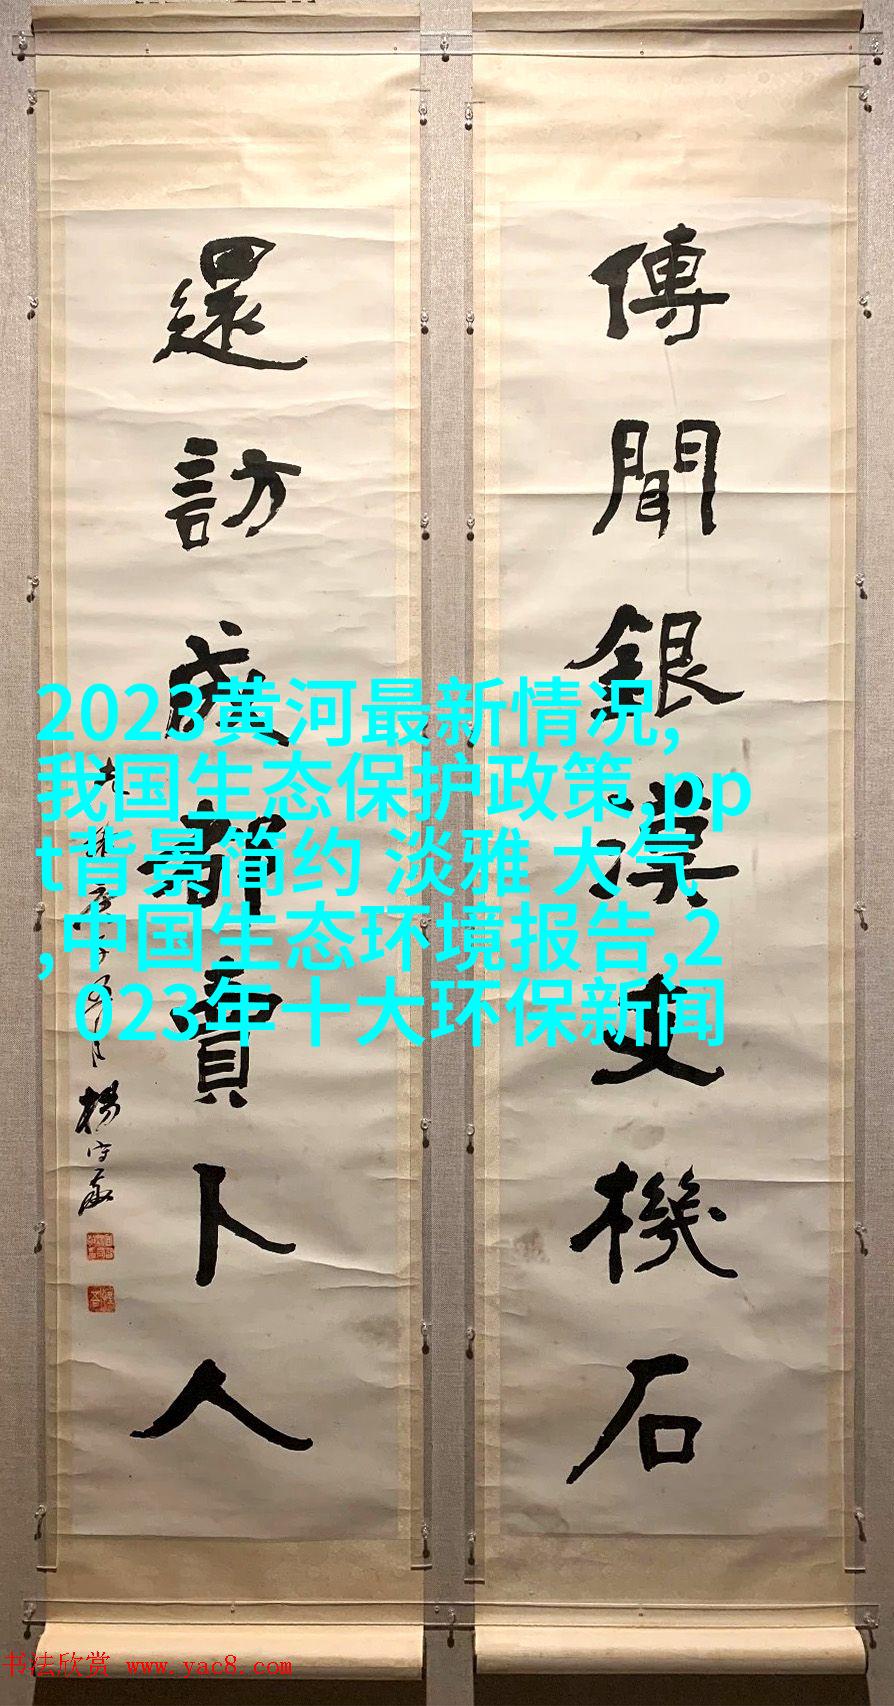 傳聞銀漢支機石
還訪成都賣卜人
楊守敬
2023黄河最新情况,
我国生态保护政策,pp
t背景简约 淡雅 大气
,中国生态环境报告,2
023年十大环保新闻
书法欣赏 www.yac8.com